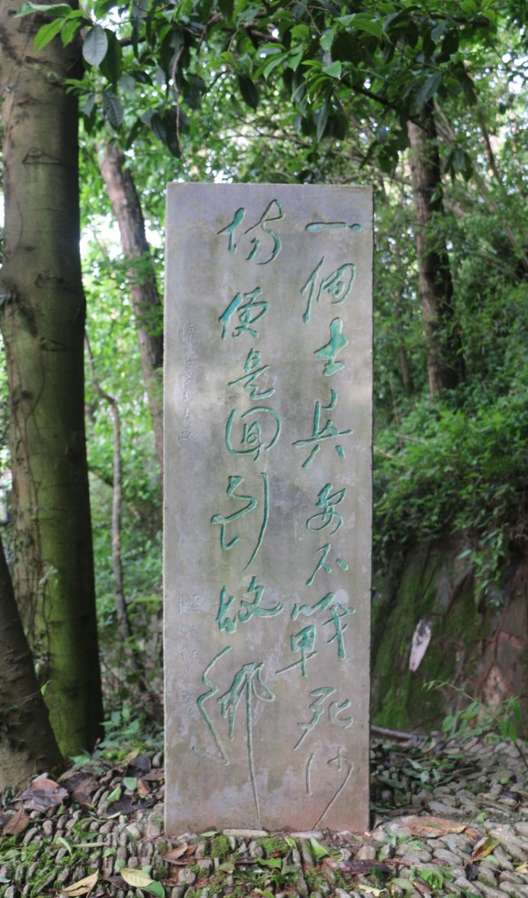 一個士兵要不戰死沙
場便是回到故鄉